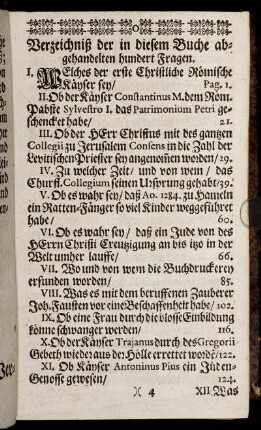 Verzeichniß der in diesem Buche ab-
gehandelten hundert Fragen.
I. Welches der erste Christliche Römische
Käyser sey/ Pag. 1.
II. Ob der Käyser Constantinus M. dem Röm.
Pabste Sylvestro I. das Patrimonium Petri ge-
schencket habe/ 21.
III. Ob der HErr Christus mit des gantzen
Collegii zu Jerusalem Consens in die Zahl der
Levitischen Priester sey angenommen worden/ 29.
IV. Zu welcher Zeit/ und von wem/ das
Churfl. Collegium seinen Ursprung gehabt/ 39.
V. Ob es wahr sey/ daß Ao. 1284. zu Hameln
ein Ratten-Fänger so viel Kinder weggeführet
habe/ 60.
VI. Ob es wahr sey/ daß ein Jude von des
HErrn Christi Creuzigung an bis itzo in der
Welt umher lauffe/ 66.
VII. Wo und von wem die Buchdruckerey
erfunden worden/ 85.
VIII. Was es mit dem beruffenen Zauberer
Joh. Fausten vor eine Beschaffenheit habe/ 102.
IX. Ob eine Frau durch die blosse Einbildung
könne schwanger werden/ 116.
X. Ob der Käyser Trajanus durch des Gregorii
Gebeth wieder aus der Hölle errettet worde/ 122.
XI. Ob Käyser Antoninus Pius ein Juden-
Genosse gewesen/ 124.
)( 4 XII. Was